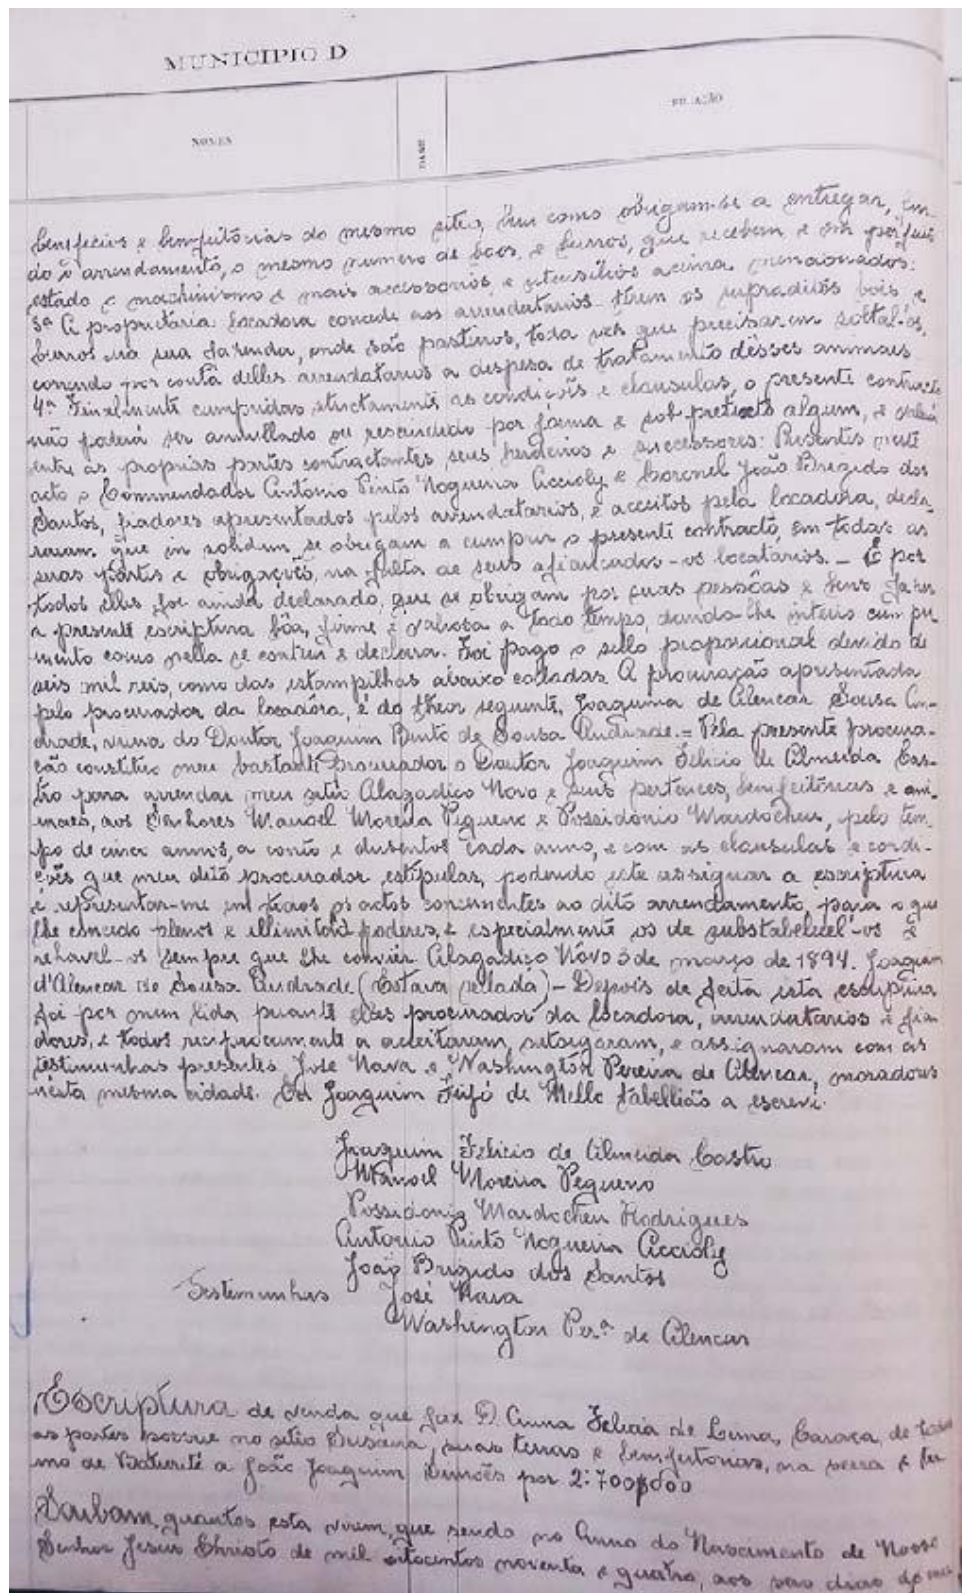 MUNICIPIO D
NOMES
FILIAÇÃO
beneficios e bemfeitórias do mesmo sitio, bem como obrigam-se a entregar,
do o arrendamento, o mesmo numero de bois, e burros, que recebem e em perfeito
estado o machinismo e mais accessorios, e utensilios acima mensionados:
3ª A proprietaria locadora concede aos arrendatarios terem os supraditos bois e
burros na sua fazenda, onde são pastinos, toda ves que precisarem soltal-os,
correndo por conta delles arrendatarios a despesa de tratamento desses animaes
4ª Finalmente cumpridas strictamente as condições e clausulas, o presente contracto
não poderá ser annullado ou rescindido por forma e sob pretexto algum, e valerá
entre as proprias partes contractantes seus herdeiros e successores: Presentes neste
acto o Commendador Antonio Pinto Nogueira Accioly e Coronel João Brigido dos
Santos, fiadores apresentados pelos arrendatarios, e acceitos pela locadora, decla-
raram que in solidum se obrigam a cumprir o presente contracto, em todas as
suas partes e obrigações, na falta de seus afiançados - os locatarios. _ E por
todos elles foi ainda declarado, que se obrigam por suas pessôas e bens fazer
a presente escriptura bôa, firme e valiosa a todo tempo, dando-lhe inteiro cumpri
mento como nella se contem e declara. Foi pago o sello proporcional devido de
seis mil reis, como das estampilhas abaixo colladas. A procuração apresentada
pelo procurador da locadora, é do theor seguinte, Joaquina de Alencar Sousa An-
drade, viuva do Doutor Joaquim Pinto de Sousa Andrade. = Pela presente procura-
ção constituo meu bastante procurador o Doutor Joaquim Felicio de Almeida Cas-
tro para arrendar meu sitio Alagadiço Novo e seus pertences, bemfeitórias e ani-
maes, aos Senhores Manoel Moreira Pequeno e Possidonio Mardocheu, pelo tem-
po de cinco annos, a conto e dusentos cada anno, e com as clausulas e condi-
ções que meu dito procurador estipulas, podendo este assignar a escriptura
e representar-me em todos os actos concernentes ao dito arrendamento, para o que
lhe concedo plenos e illimitold poderes, e especialmente os de substabelecel-os e
rehavel-os sempre que lhe convier. Alagadiço Novo 3 de março de 1894. Joaquina
d'Alencar de Sousa Andrade (Estava sellada) - Depois de feita esta escriptura
foi por mim lida perante elles procurador da locadora, arrendatarios e fia
dores, e todos reciprocamente a acceitaram, outorgaram, e assignaram com as
testimunhas presentes José Nava e Washington Pereira de Alencar, moradores
nesta mesma cidade. Eu Joaquim Feijó de Mello tabellião a escrevi.
Joaquim Felicio de Almeida Castro
Manoel Moreira Pequeno
Possidonio Mardocheu Rodrigues
Antonio Pinto Nogueira Accioly
João Brigido dos Santos
Testemunhas José Nava
Washington Per.ª de Alencar
Escriptura de venda que faz D. Anna Felicia de Lima, de todas
as partes no sitio suas terras e bemfeitorias, na serra e ter
mo de Baturité a João Joaquim Simões por 2:700$000
Saibam quantos esta virem, que sendo no Anno do Nascimento de Nosso
Senhor Jesus Christo de mil oitocentos noventa e quatro, aos seis dias do mes